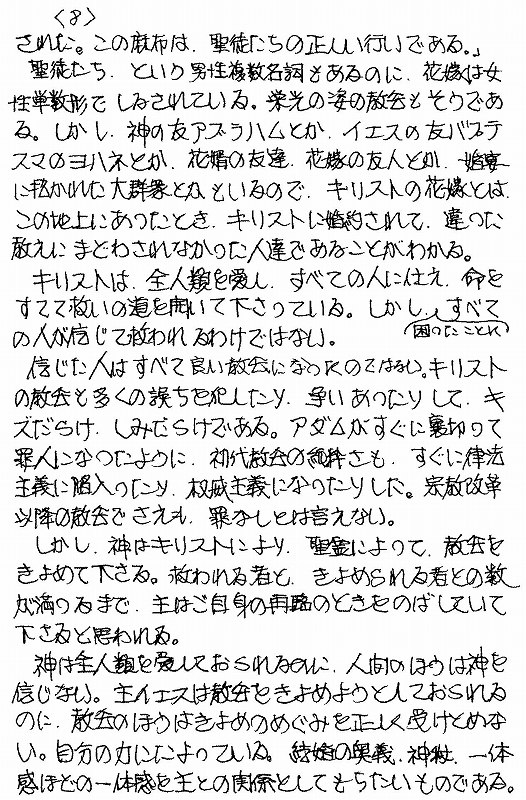 〈8〉
された。この麻布は、聖徒たちの正しい行いである。」
聖徒たち、という男性複数名詞もあるのに、花嫁は女
性単数形でしるされている。栄光の姿の教会もそうであ
る。しかし、神の友アブラハムとか、イエスの友バプテ
スマのヨハネとか、花婿の友達、花嫁の友人とか、婚宴
に招かれた大群衆とかもいるので、キリストの花嫁とは、
この地上にあったとき、キリストに婚約されて、違った
教えにまどわされなかった人達であることがわかる。
キリストは、全人類を愛し、すべての人に仕え、命を
すてて救いの道を開いて下さっている。しかし、すべて
の人が信じて救われるわけではない。(困ったことに
信じた人はすべて良い教会になったのではない。キリスト
の教会も多くの誤ちを犯したり、争いあったりして、キ
ズだらけ、しみだらけである。アダムがすぐに裏切って
罪人になったように、初代教会の純粋さも、すぐに律法
主義に陥入ったり、権威主義になったりした。宗教改革
以降の教会でさえも、罪なしとは言えない。
しかし、神はキリストにより、聖霊によって、教会を
きよめて下さる。救われる者と、きよめられる者との数
が満つるまで、主はご自身の再臨のときをのばしていて
下さると思われる。
神は全人類を愛しておられるのに、人間のほうは神を
信じない。主イエスは教会をきよめようとしておられる
のに、教会のほうはきよめのめぐみを正しく受けとめな
い。自分の力にたよっている。結婚の奥義、神秘、一体
感ほどの一体感を主との関係としてもちたいものである。